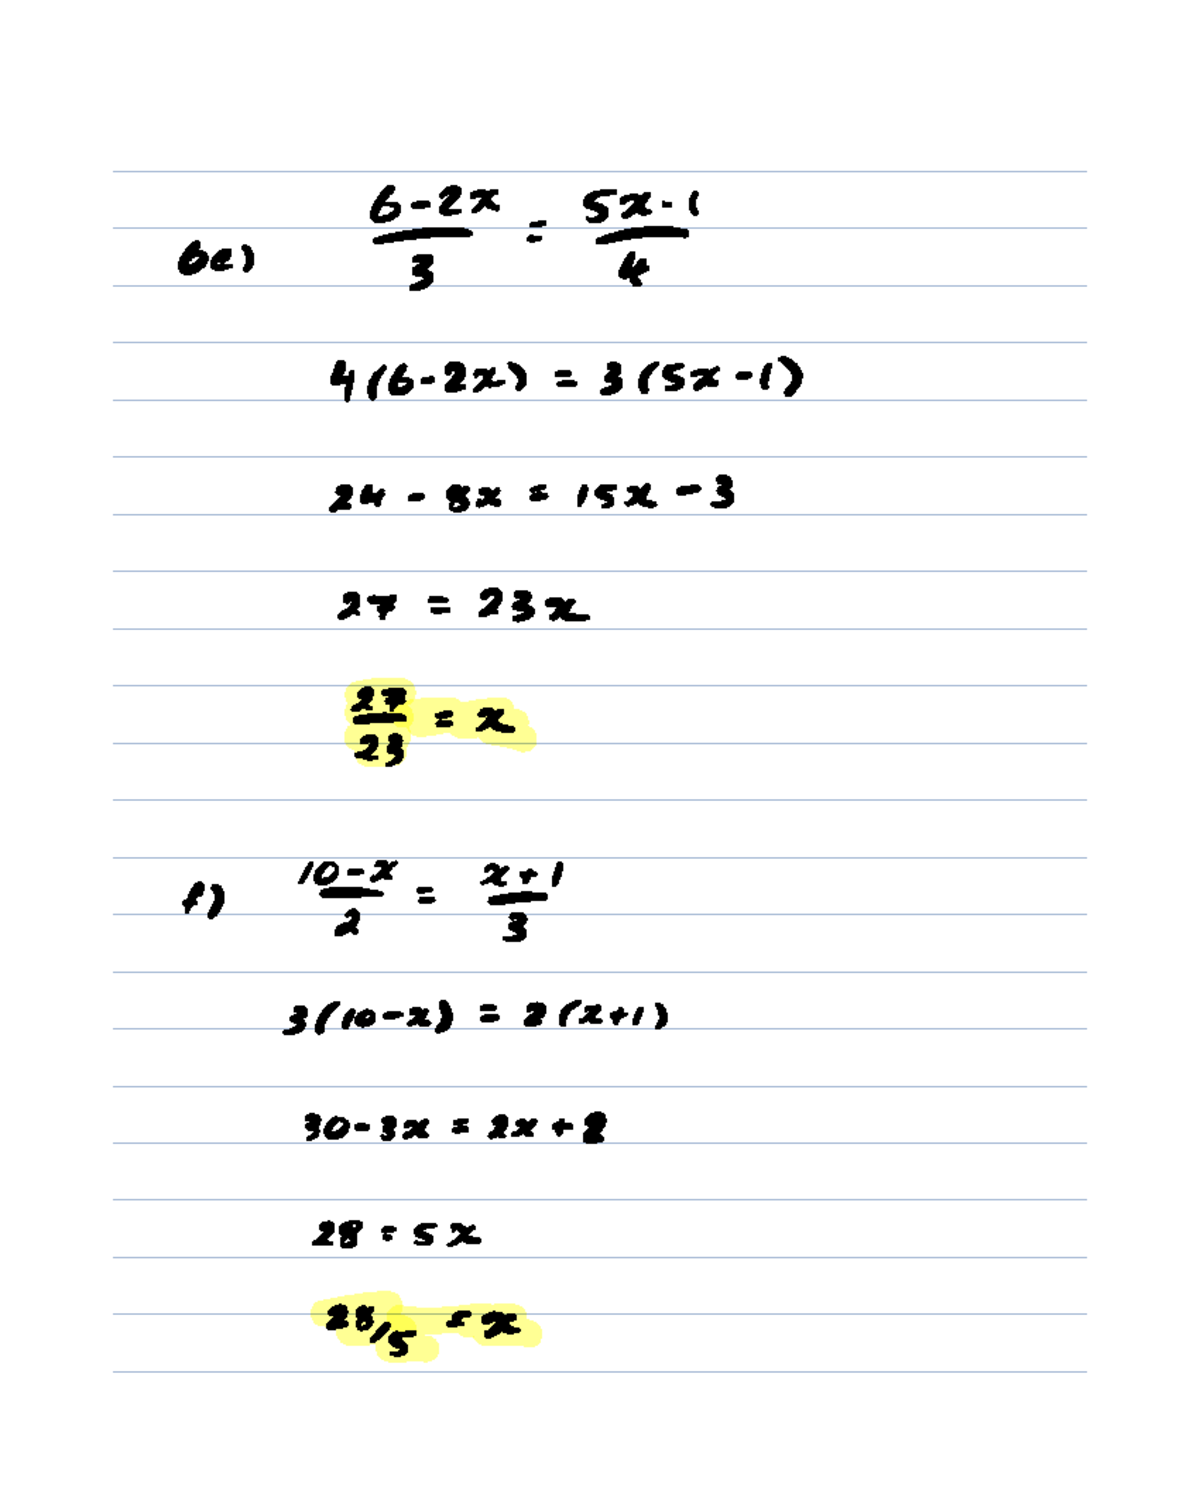 6e) (6-2x)/3 = (5x-1)/4
4(6-2x) = 3(5x-1)
24 - 8x = 15x - 3
27 = 23x
27/23 = x
f) (10-x)/2 = (x+1)/3
3(10-x) = 2(x+1)
30-3x = 2x+2
28 = 5x
28/5 = x